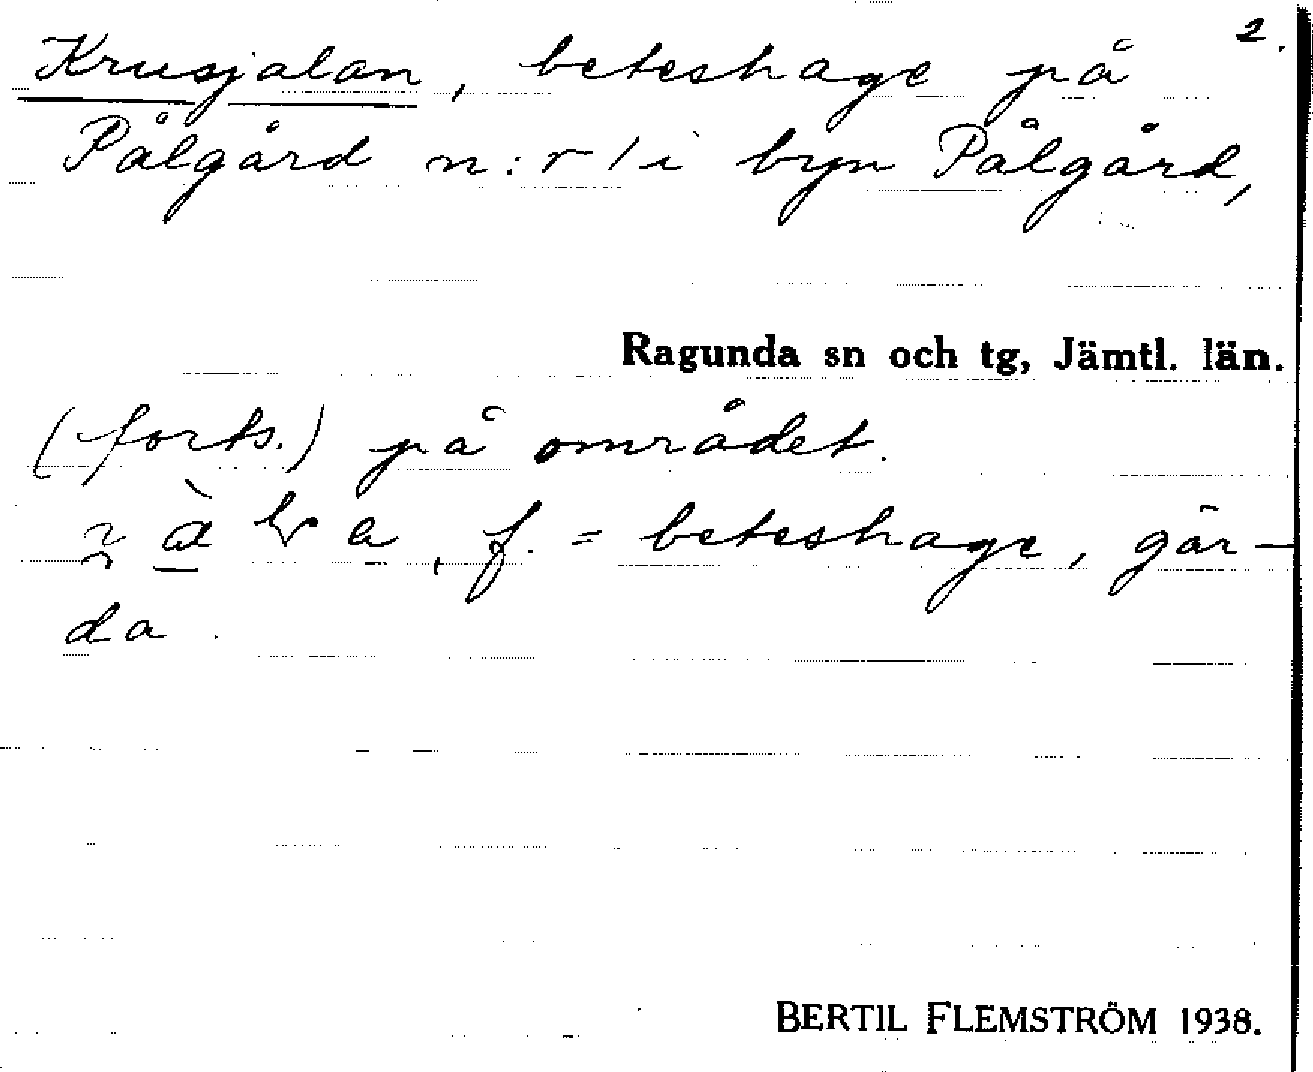 2.
Krusjalan, beteshage på
Pålgård n:r 1 i byn Pålgård,
Ragunda sn och tg, Jämtl. län.
(forts.) på området.
f. = beteshage, gär-
da.
BERTIL FLEMSTRÖM 1938.